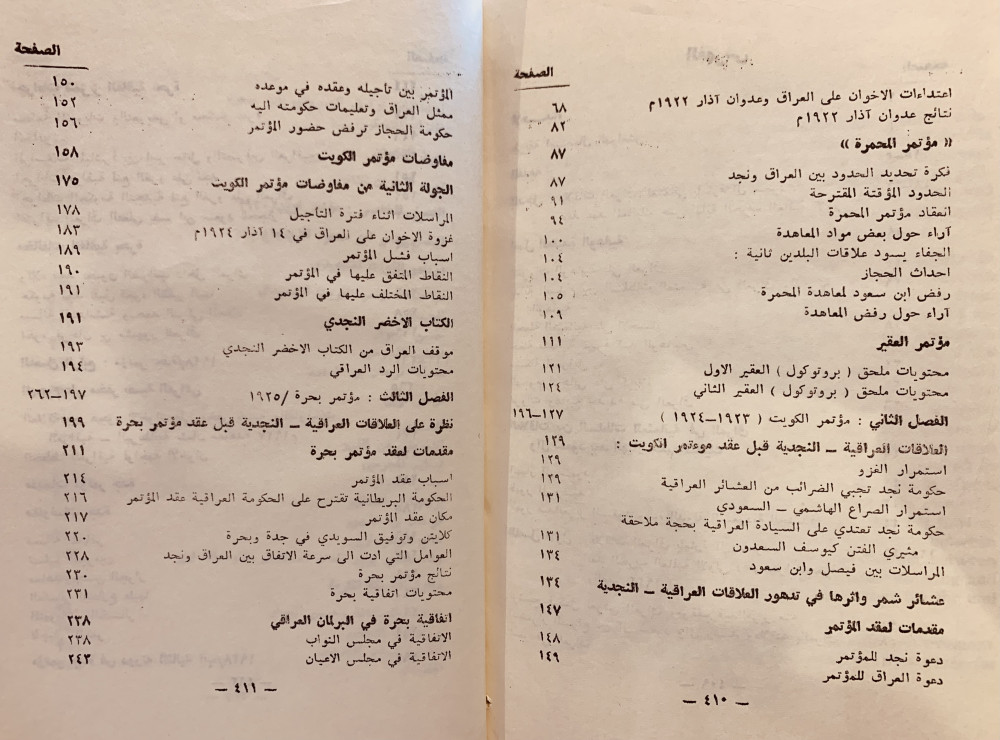 الصفحة
اعتداءات الاخوان على العراق وعدوان آذار ١٩٢٢م ٦٨
نتائج عدوان آذار ١٩٢٢م ٨٢
« مؤتمر المحمرة » ٨٧
فكرة تحديد الحدود بين العراق ونجد ٨٧
الحدود المؤقتة المقترحة ٩١
انعقاد مؤتمر المحمرة ٩٤
آراء حول بعض مواد المعاهدة ١٠٠
الجفاء يسود علاقات البلدين ثانية : ١٠٤
احداث الحجاز ١٠٤
رفض ابن سعود لمعاهدة المحمرة ١٠٥
آراء حول رفض المعاهدة ١٠٩
مؤتمر العقير ١١١
محتويات ملحق ( بروتوكول ) العقير الاول ١٢١
محتويات ملحق ( بروتوكول ) العقير الثاني ١٢٤
الفصل الثاني : مؤتمر الكويت ( ١٩٢٣–١٩٢٤ ) ١٢٧–١٩٦
العلاقات العراقية – النجدية قبل عقد موءتمر الكويت : ١٢٩
استمرار الغزو ١٢٩
حكومة نجد تجبي الضرائب من العشائر العراقية ١٢٩
استمرار الصراع الهاشمي – السعودي ١٣١
حكومة نجد تعتدي على السيادة العراقية بحجة ملاحقة
مثيري الفتن كيوسف السعدون ١٣١
المراسلات بين فيصل وابن سعود ١٣٤
عشائر شمر واثرها في تدهور العلاقات العراقية – النجدية ١٣٤
مقدمات لعقد المؤتمر ١٤٧
دعوة نجد للمؤتمر ١٤٨
دعوة العراق للمؤتمر ١٤٩
– ٤١٠ –
الصفحة
المؤتمر بين تأجيله وعقده في موعده ١٥٠
ممثل العراق وتعليمات حكومته اليه ١٥٢
حكومة الحجاز ترفض حضور المؤتمر ١٥٦
مفاوضات مؤتمر الكويت ١٥٨
الجولة الثانية من مفاوضات مؤتمر الكويت ١٧٥
المراسلات اثناء فترة التأجيل ١٧٨
غزوة الاخوان على العراق في ١٤ آذار ١٩٢٤م ١٨٣
اسباب فشل المؤتمر ١٨٩
النقاط المتفق عليها في المؤتمر ١٩٠
النقاط المختلف عليها في المؤتمر ١٩١
الكتاب الاخضر النجدي ١٩١
موقف العراق من الكتاب الاخضر النجدي ١٩٣
محتويات الرد العراقي ١٩٤
الفصل الثالث : مؤتمر بحرة /١٩٢٥ ١٩٧–٢٦٢
نظرة على العلاقات العراقية – النجدية قبل عقد مؤتمر بحرة ١٩٩
مقدمات لعقد مؤتمر بحرة ٢١١
اسباب عقد المؤتمر ٢١٤
الحكومة البريطانية تقترح على الحكومة العراقية عقد المؤتمر ٢١٦
مكان عقد المؤتمر ٢١٧
كلايتن وتوفيق السويدي في جدة وبحرة ٢٢٠
العوامل التي ادت الى سرعة الاتفاق بين العراق ونجد ٢٢٨
نتائج مؤتمر بحرة ٢٣٠
محتويات اتفاقية بحرة ٢٣١
اتفاقية بحرة في البرلمان العراقي ٢٣٨
الاتفاقية في مجلس النواب ٢٣٨
الاتفاقية في مجلس الاعيان ٢٤٣
– ٤١١ –